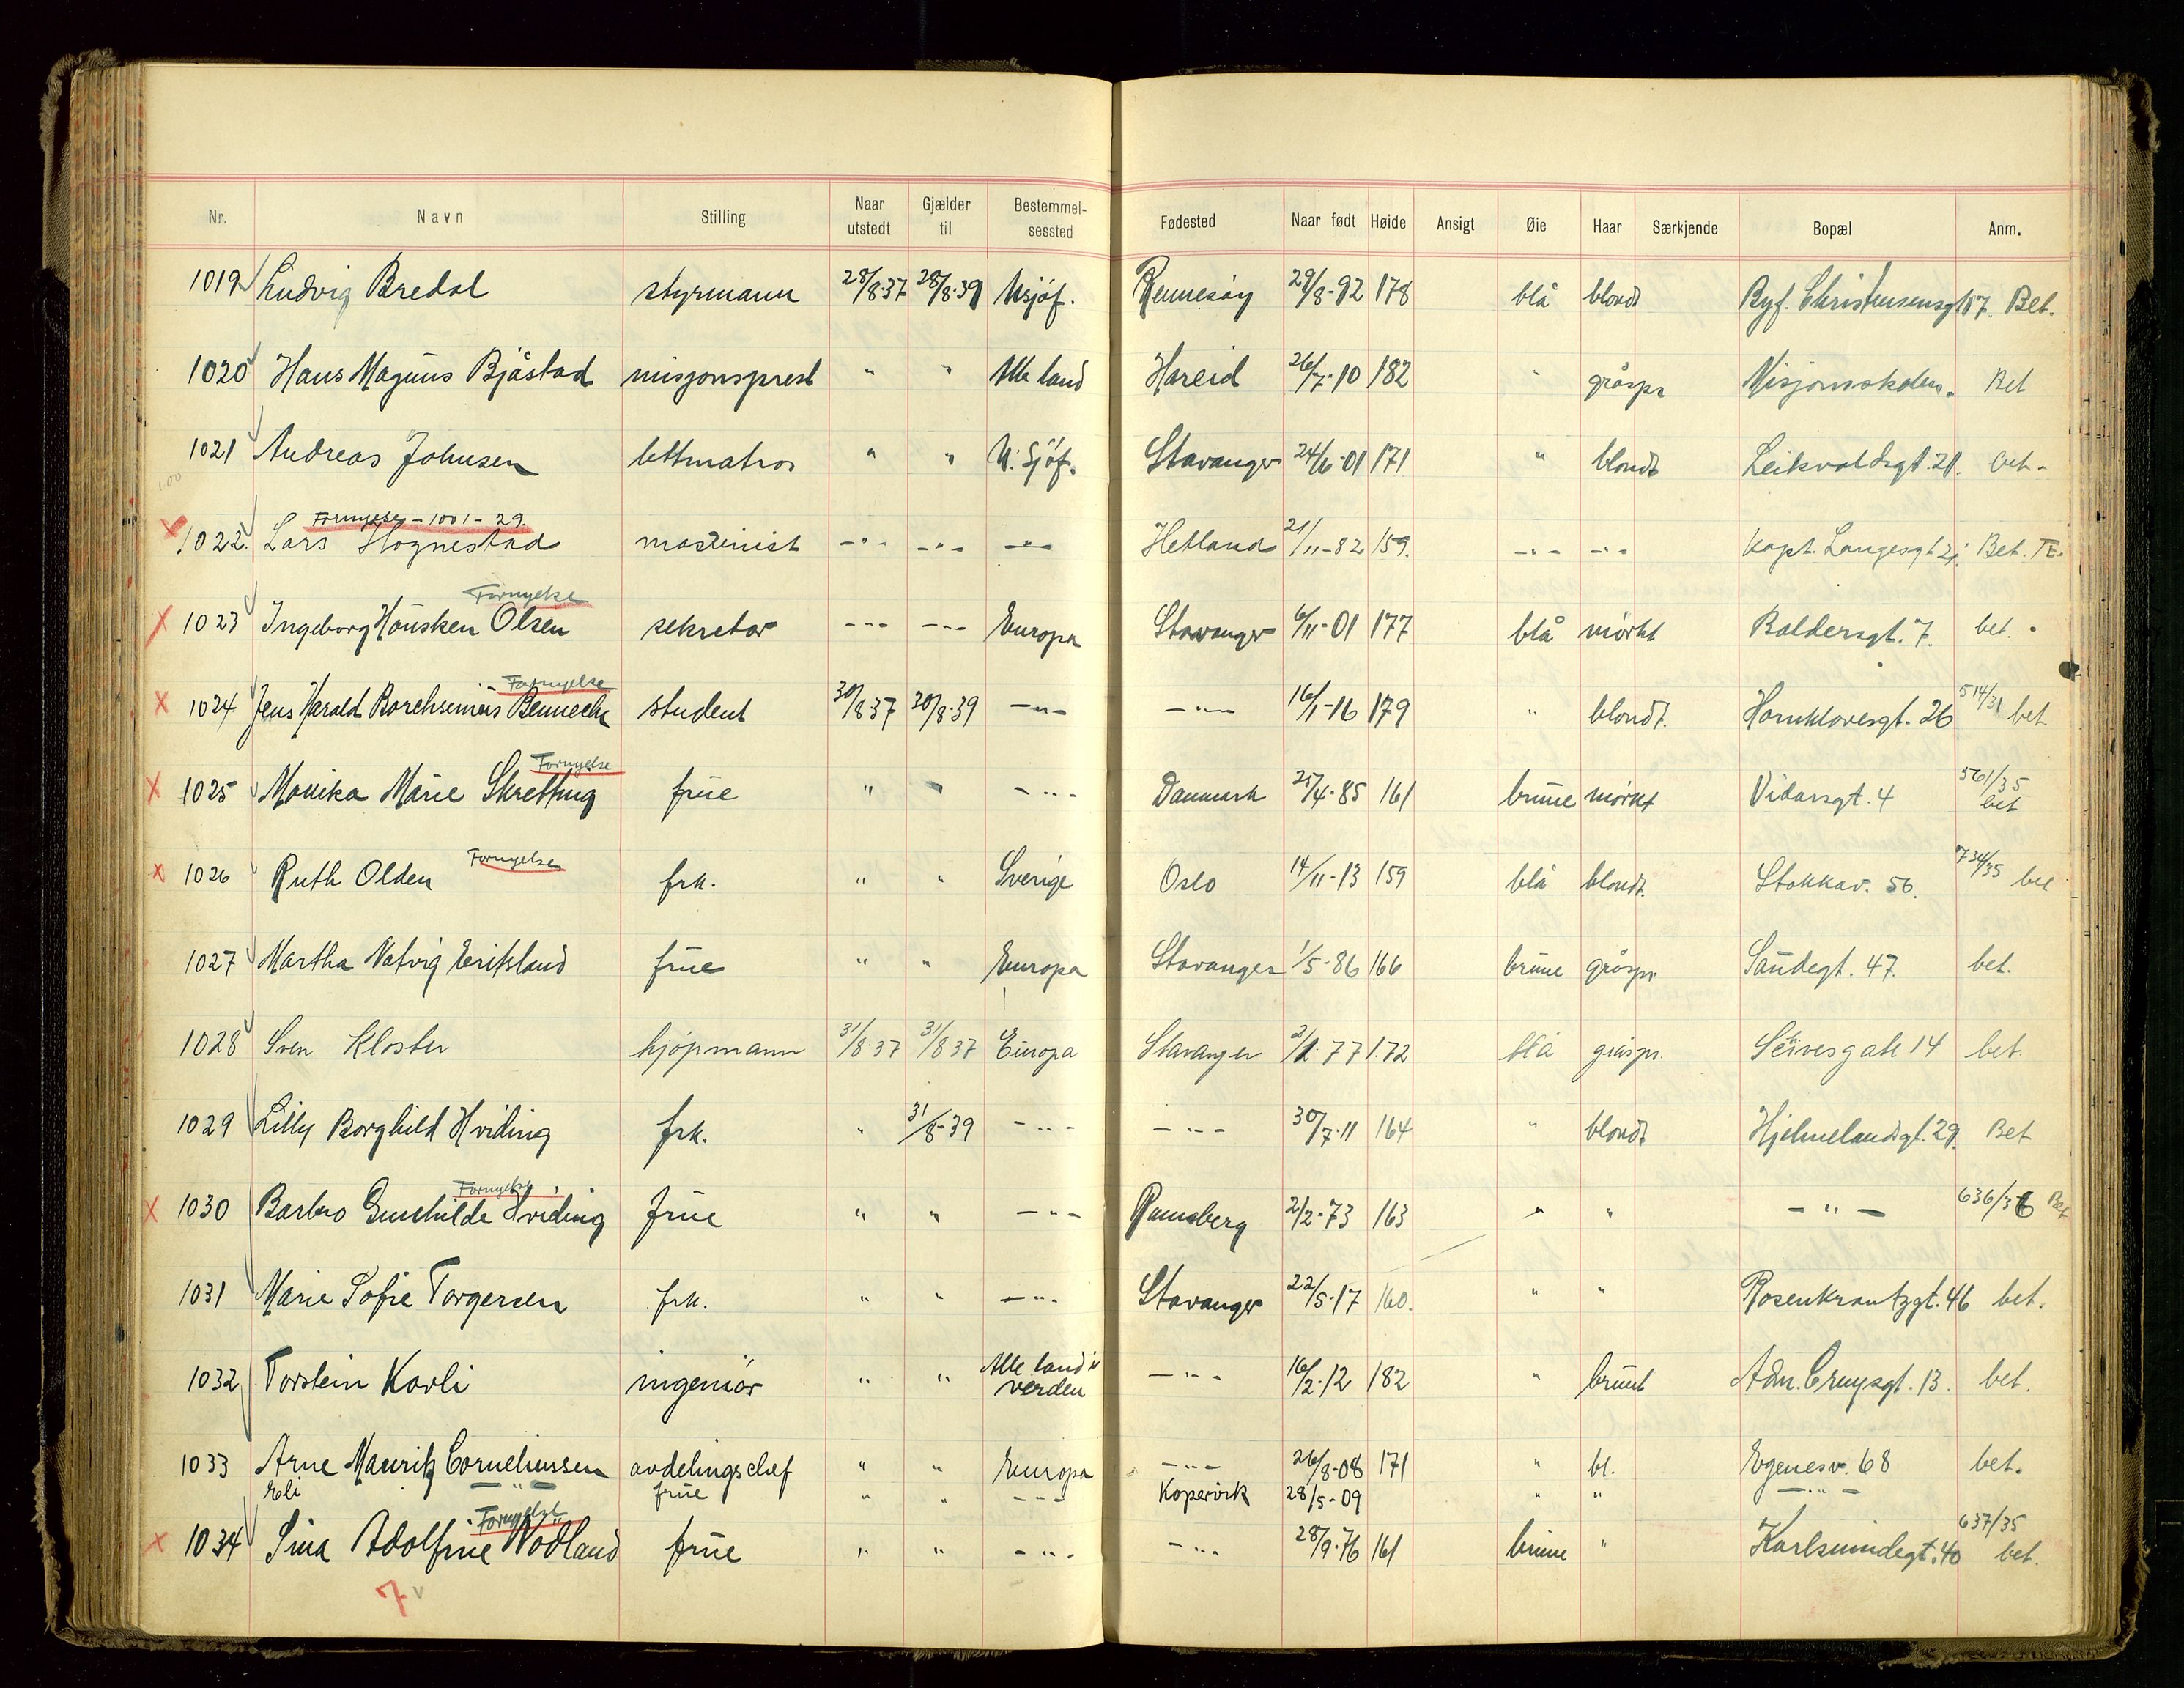 Nr. Navn Stilling Naar utstedt Gjælder til Bestemmel-sessted Fødested Naar født Høide Ansigt Øie Haar Særkjende Bopæl Anm.
1019 Ludvig Bredal styrmann 28/8-37 28/8-39 Usjöf. Rennesöy 29/8-92 178 blå blondt Byf. Christensensgt 17. Bet.
1020 Hans Magnus Bjåstad misjonsprest " " Alle land Hareid 26/7-10 182 " gråspr Misjonsskolen. Bet
1021 Andreas Johnsen lettmatros " " U. Sjöf. Stavanger 24/6-01 171 " blondt Leikvoldsgt. 21. bet.
1.00
Fornyelse - 1001 - 29.
1022. Lars Hognestad maskinist -"- -"- -"- Hetland 21/11-82 159. -"- -"- Kapt. Langesgt 21. Bet. TE.
Fornyelse
1023 Ingeborg Housken Olsen sekretær -"- -"- Europa Stavanger 6/11-01 177 blå mörkt Baldersgt. 7. bet.
Fornyelse
1024 Jens Harald Borchsenius Benneche student 30/8-37 30/8-39 -"- -"- 16/1-16 179 " blondt. Hornklovesgt. 26 514/31 bet
Fornyelse
1025 Monika Marie Skretting frue " " -"- Danmark 25/4-85 161 brune mörkt Vidarsgt. 4 561/35 bet
Fornyelse
1026 Ruth Olden frk. " " Sverige Oslo 14/11-13 159 blå blondt. Stokkav. 56. 734/35 bet
1027 Martha Natvig Eriksland frue " " Europa Stavanger 1/5-86 166 brune gråspr Sandegt. 47. bet.
1028 Sven Kloster kjöpmann 31/8-37 31/8 37 Europa Stavanger 77 1.72 blå gråspr. 14 bet.
1029 Lilly Borghild Hviding frk. " 31/8-39 -"- -"- 30/7-11 164 " blondt Hjelmelandsgt. 29. Bet
Fornyelse
1030 Barbro Gunhilde Hviding frue " " -"- Ramsberg 2/2-73 163 " " -"- 636/36 Bet
1031 Marie Sofie Torgersen frk. " " -"- Stavanger 22/5-17 160. " " Rosenkrantzgt. 46 bet.
1032 Torstein Korli ingeniör " " Alle land i verden -"- 16/2-12 182 " brunt Adm. Cruysgt. 13. bet.
1033 Arne Mauritz Corneliussen avdelingschef " " Europa -"- 26/8-08 171 " bl. Egenesv. 68 bet.
Eli -"- frue " " -"- Kopervik 28/5-09 " " -"-
Fornyelse
1034 Sina Adolfine Wodland frue " " -"- -"- 28/9-76 161 brune " Karlsmindegt. 40 637/35 bet.
7